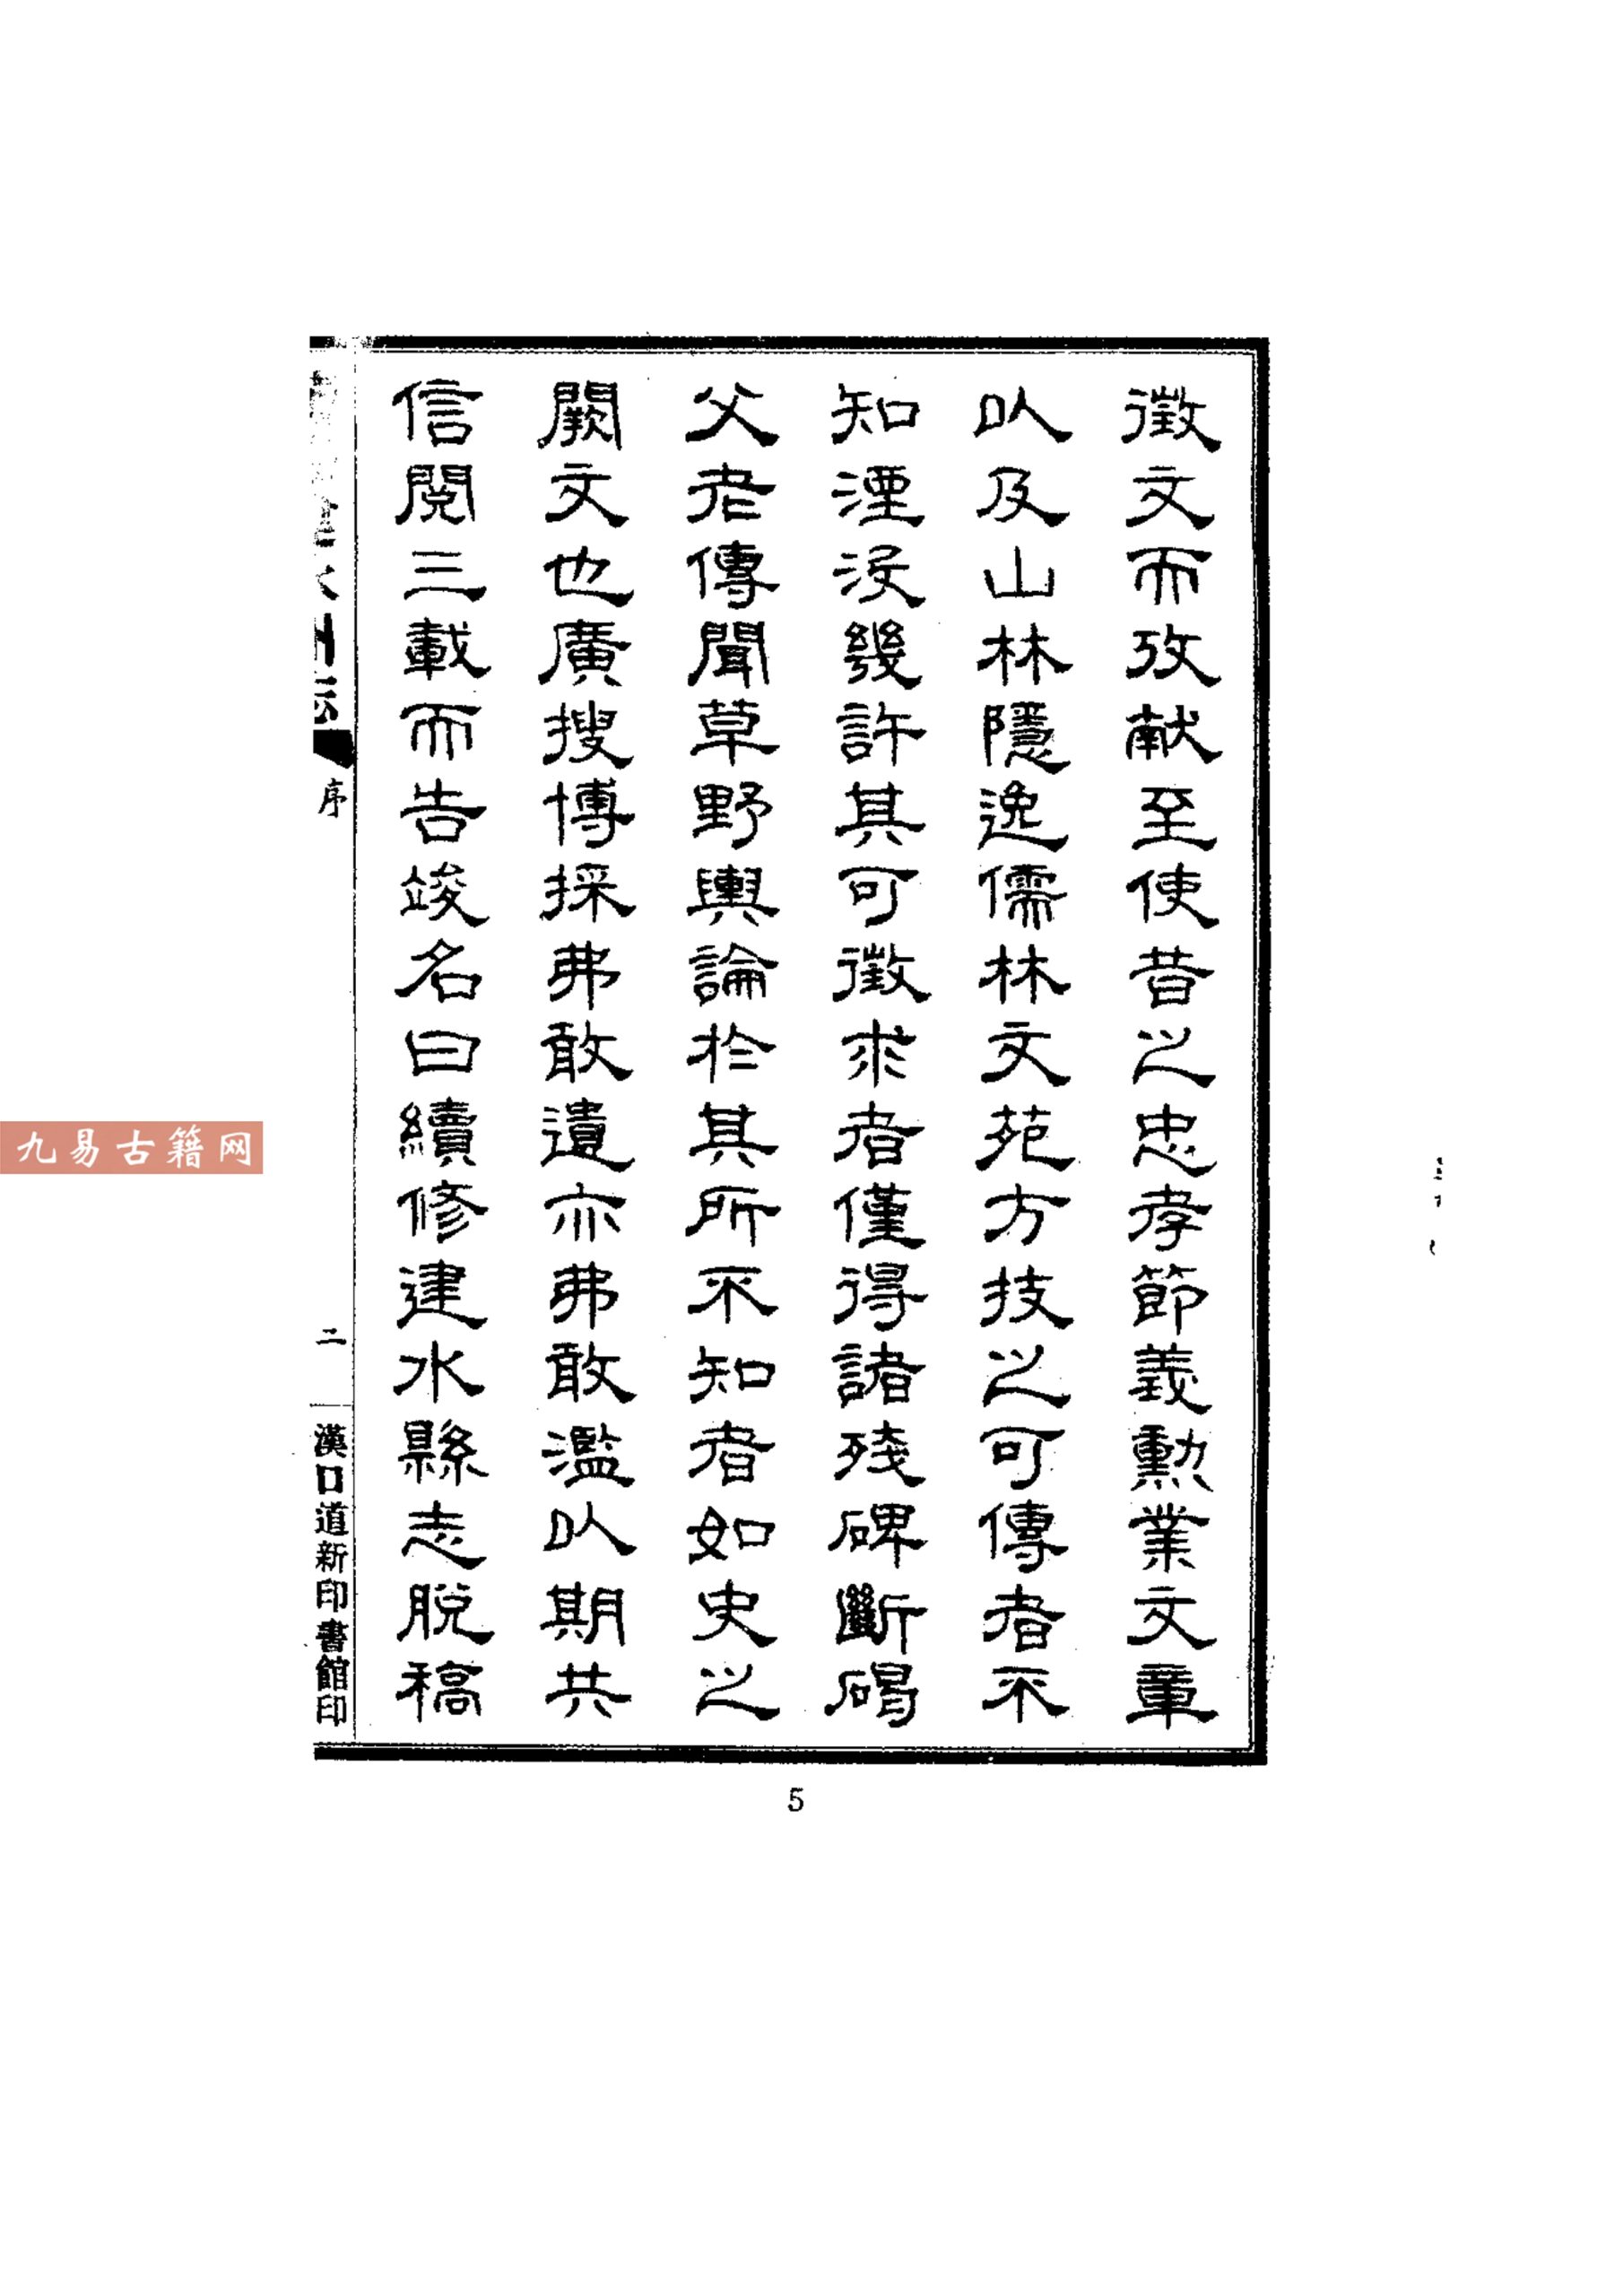 徵文而攷献至使昔之忠孝節義勳業文章
以及山林隱逸儒林文苑方技之可傳者不
知湮沒幾許其可徵求者僅得諸殘碑斷碣
父老傳聞草野輿論於其所不知者如史之
闕文也廣搜博採弗敢遺亦弗敢濫以期共
信閱三載而告竣名曰續修建水縣志脫稿
序
二
漢口道新印書館印
5
九易古籍网